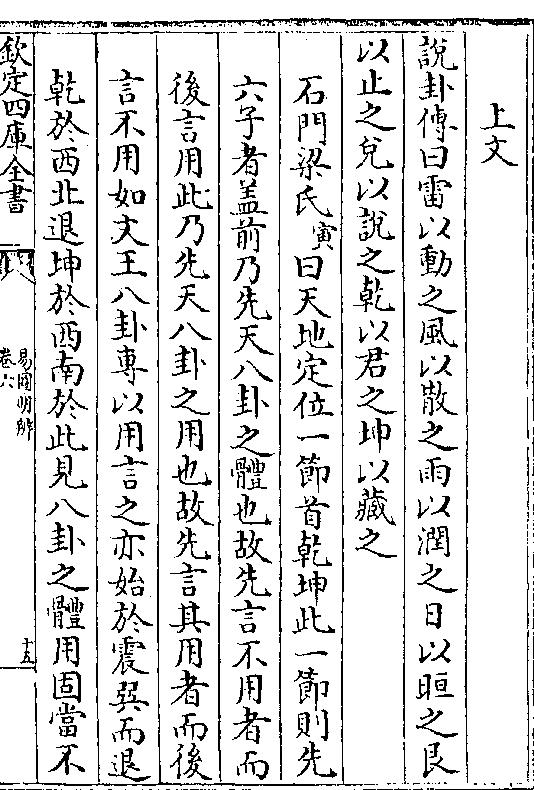 上文
說卦傳曰雷以動之風以散之雨以潤之日以晅之艮
以止之兌以說之乾以君之坤以藏之
石門梁氏寅曰天地定位一節首乾坤此一節則先
六子者盖前乃先天八卦之體也故先言不用者而
後言用此乃先天八卦之用也故先言其用者而後
言不用如文王八卦專以用言之亦始於震巽而退
乾於西北退坤於西南於此見八卦之體用固當不
欽定四庫全書
易圖明辨
卷六
十五